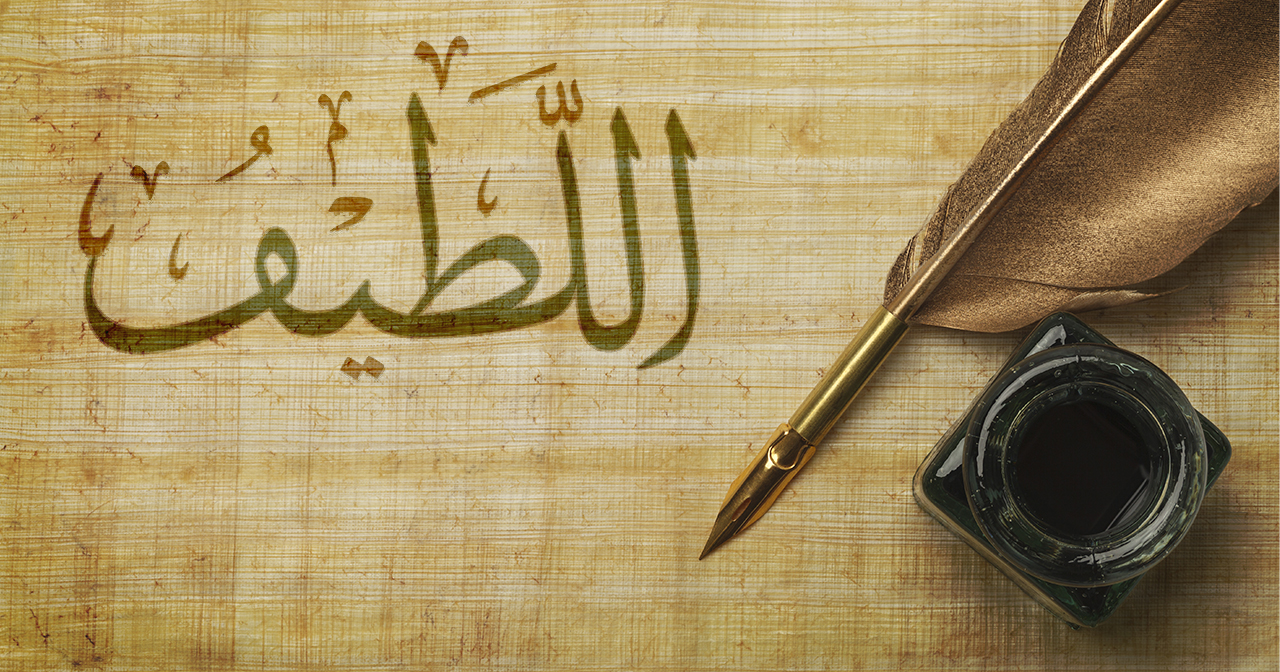 اللَّطِيفُ